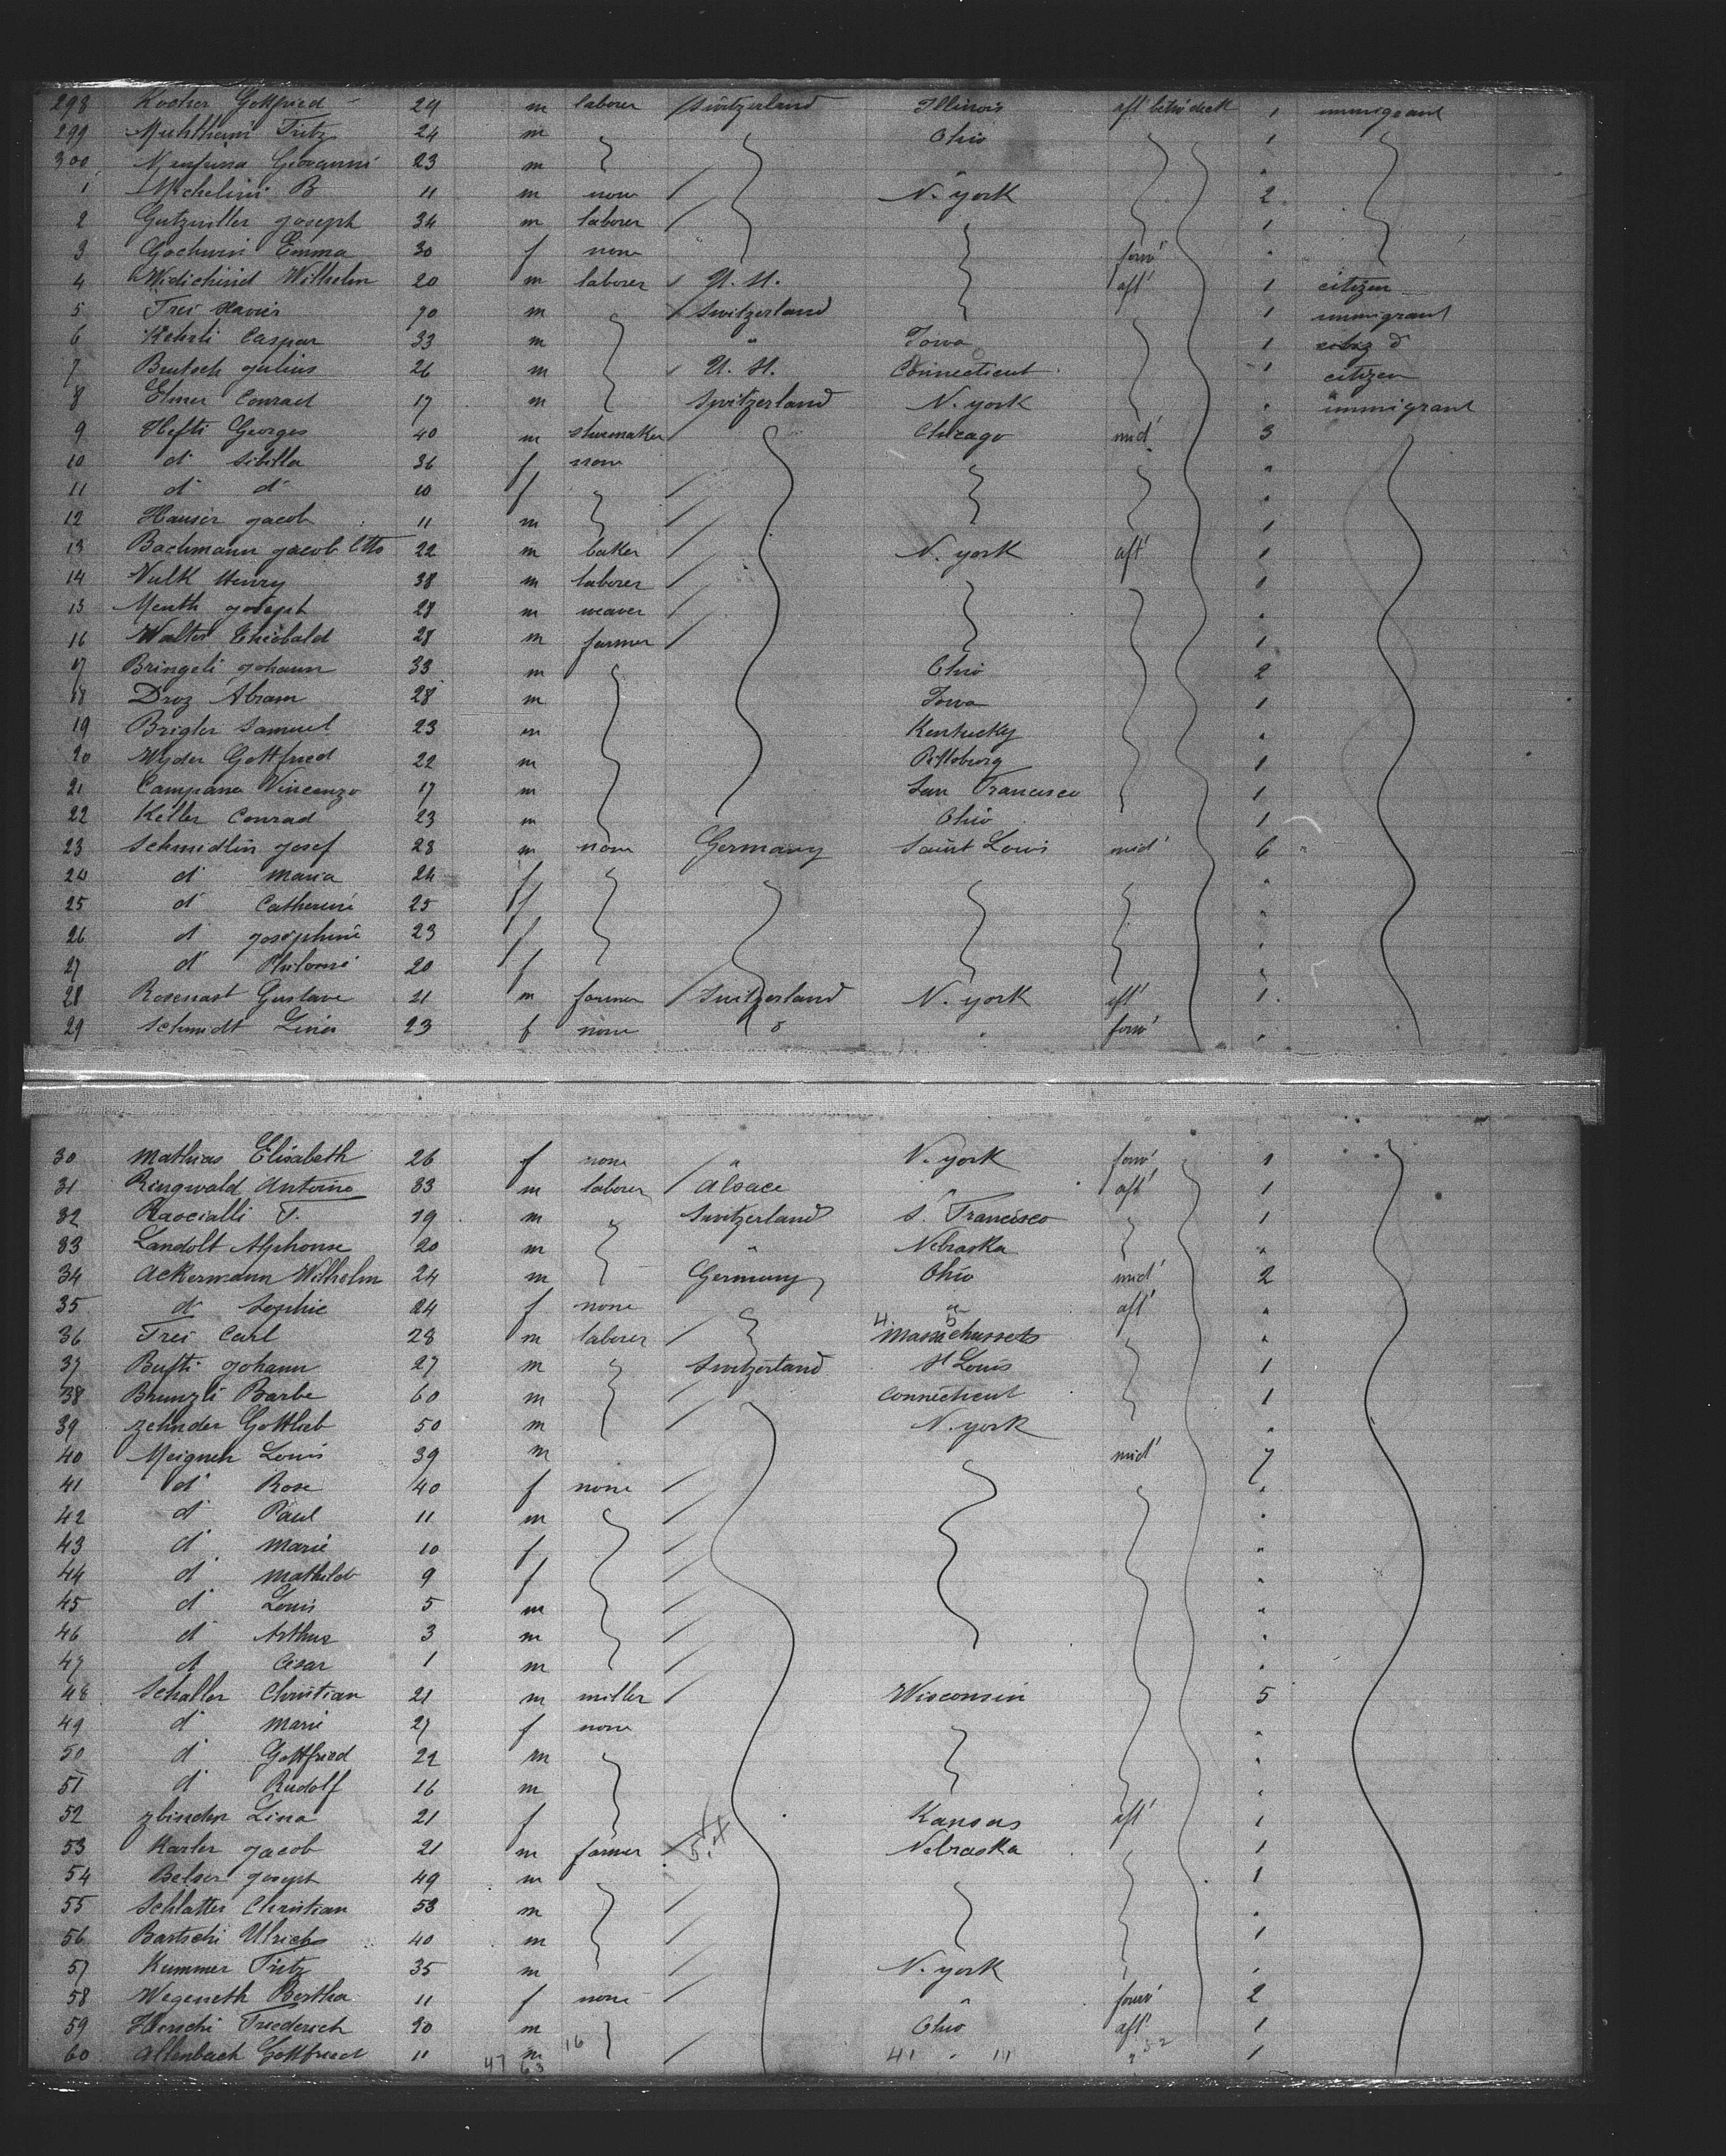 298 Kocher Gottfried 29 m laborer Switzerland Illinois aft betw deck 1 immigrant
299 Fritz 24 m Ohio 1
300 Giovanni 23 m "
1 Michelini B 11 m none N. york 2
2 Gutzwiller Joseph 34 m laborer 1
3 Emma 30 f none forw "
4 Wilhelm 20 m laborer U. S. aft 1 citizen
5 Frei Xavier m Switzerland 1 immigrant
6 Kehrli Caspar 33 m " Iowa 1 do
7 Julius 26 m U. S. Connecticut 1 citizen
8 Elmer Conrad 17 m Switzerland N. york " immigrant
9 Hefti Georges 40 m shoemaker Chicago mid 3
10 do Sibilla 36 f none "
11 do do 10 f "
12 Hauser Jacob 11 m 1
13 Bachmann Jacob Otto 22 m baker N. york aft 1
14 Henry 38 m laborer 1
15 Menth Joseph 28 m weaver "
16 Walter Thiebald 28 m farmer 1
17 Bringeli Johann 33 m Ohio 2
18 Droz Abram 28 m Iowa 1
19 Brigler Samuel 23 m Kentucky "
20 Wyder Gottfried 22 m Pittsburg 1
21 Campana Vincenzo 17 m San Francisco 1
22 Keller Conrad 23 m Ohio 1
23 Schmidlin Josef 28 m none Germany Saint Louis mid 6
24 do Maria 24 f "
25 do Catherine 25 f "
26 do Josephine 23 f "
27 do 20 f "
28 Rosenast Gustave 21 m farmer Switzerland N. york aft 1
29 Schmidt Lina 23 f none " " forw "
30 Mathias Elisabeth 26 f none " N. york forw 1
31 Ringwald Antoine 33 m laborer Alsace " aft 1
32 19 m Switzerland S. Francisco 1
33 Landolt Alphonse 20 m " Nebraska "
34 Ackermann Wilhelm 24 m Germany Ohio mid 2
35 do Sophie 24 f none " aft "
36 Frei Carl 28 m laborer Massachussets "
37 Johann 27 m Switzerland St Louis 1
38 Barbe 60 m Connecticut 1
39 Zehnder Gottlieb 50 m N. york "
40 Louis 39 m mid 7
41 do Rose 40 f none "
42 do Paul 11 m "
43 do Marie 10 f "
44 do Mathilde 9 f "
45 do Louis 5 m "
46 do Arthur 3 m "
47 do Cesar 1 m "
48 Schaller Christian 21 m miller Wisconsin 5
49 do Marie 27 f none "
50 do Gottfried 22 m "
51 do Rudolf 16 m "
52 Lina 21 f Kansas aft 1
53 Jacob 21 m farmer Nebraska 1
54 Joseph 49 m 1
55 Schlatter Christian 58 m "
56 Bartschi Ulrich 40 m 1
57 Kummer Fritz 35 m N. york "
58 Bertha 11 f none " forw 2
59 Friederich 20 m Ohio aft 1
60 Allenbach Gottfried 11 m " 1